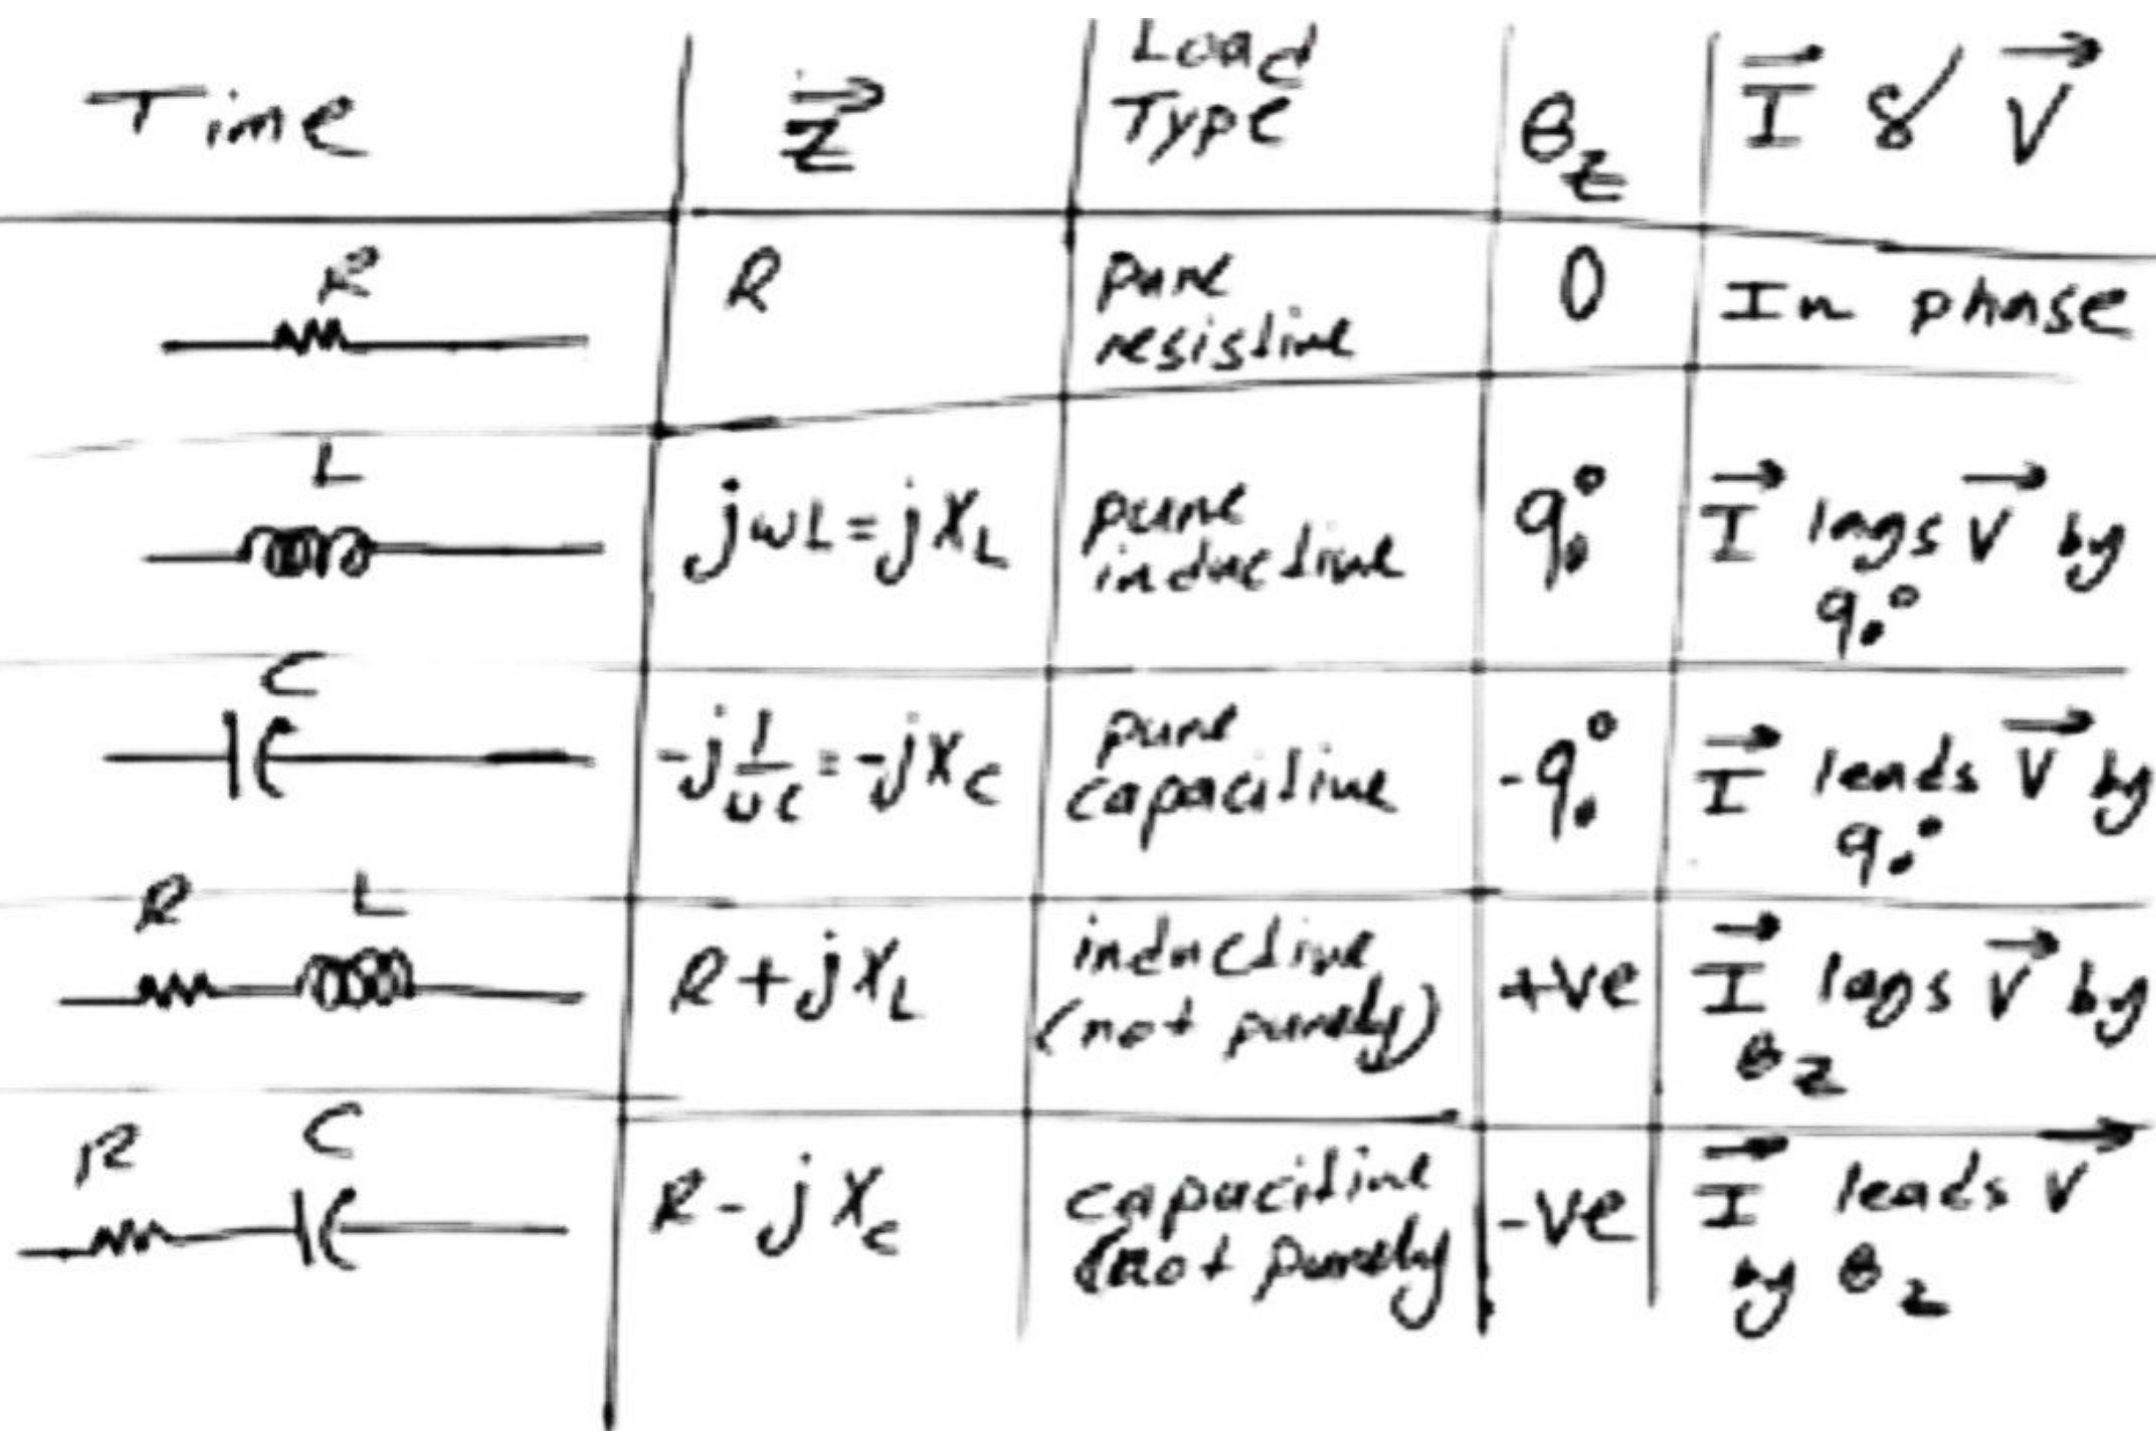 Time
Z
Load
Type
θz
I & V
R
R
pure
resistive
0
In phase
L
jωL = jXL
pure
inductive
90°
I lags V by
90°
C
-j 1/ωC = -jXC
pure
capacitive
-90°
I leads V by
90°
R L
R + jXL
inductive
(not purely)
+ve
I lags V by
θz
R C
R - jXc
capacitive
(not purely)
-ve
I leads V
by θz